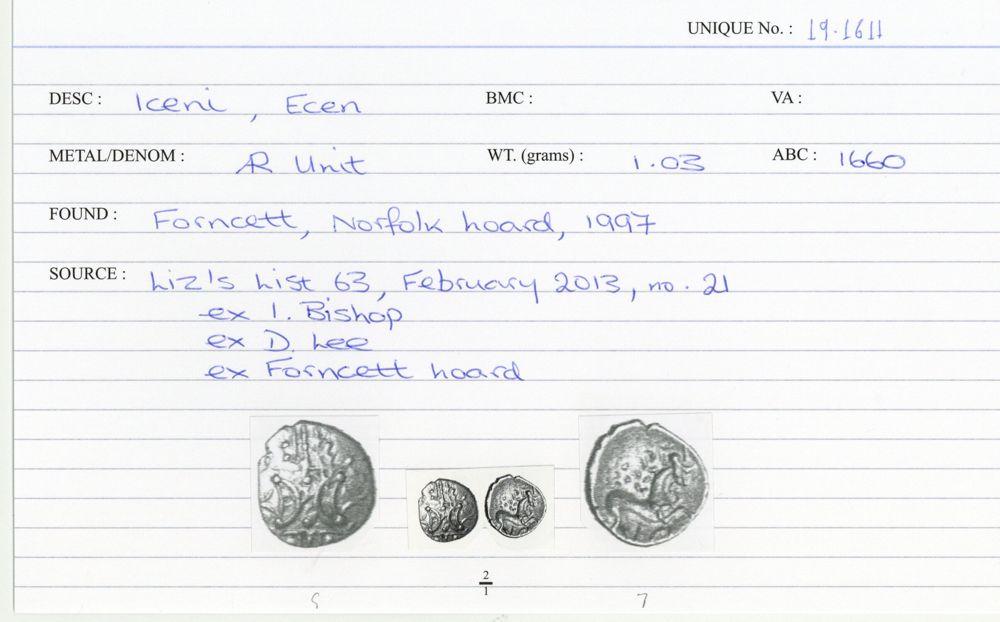 UNIQUE No. : 19.1611
DESC : Iceni, Ecen BMC : VA :
METAL/DENOM : AR Unit WT. (grams) : 1.03 ABC : 1660
FOUND : Forncett, Norfolk hoard, 1997
SOURCE : Liz's List 63, February 2013, no. 21
ex I. Bishop
ex D. Lee
ex Forncett hoard
2
1
7